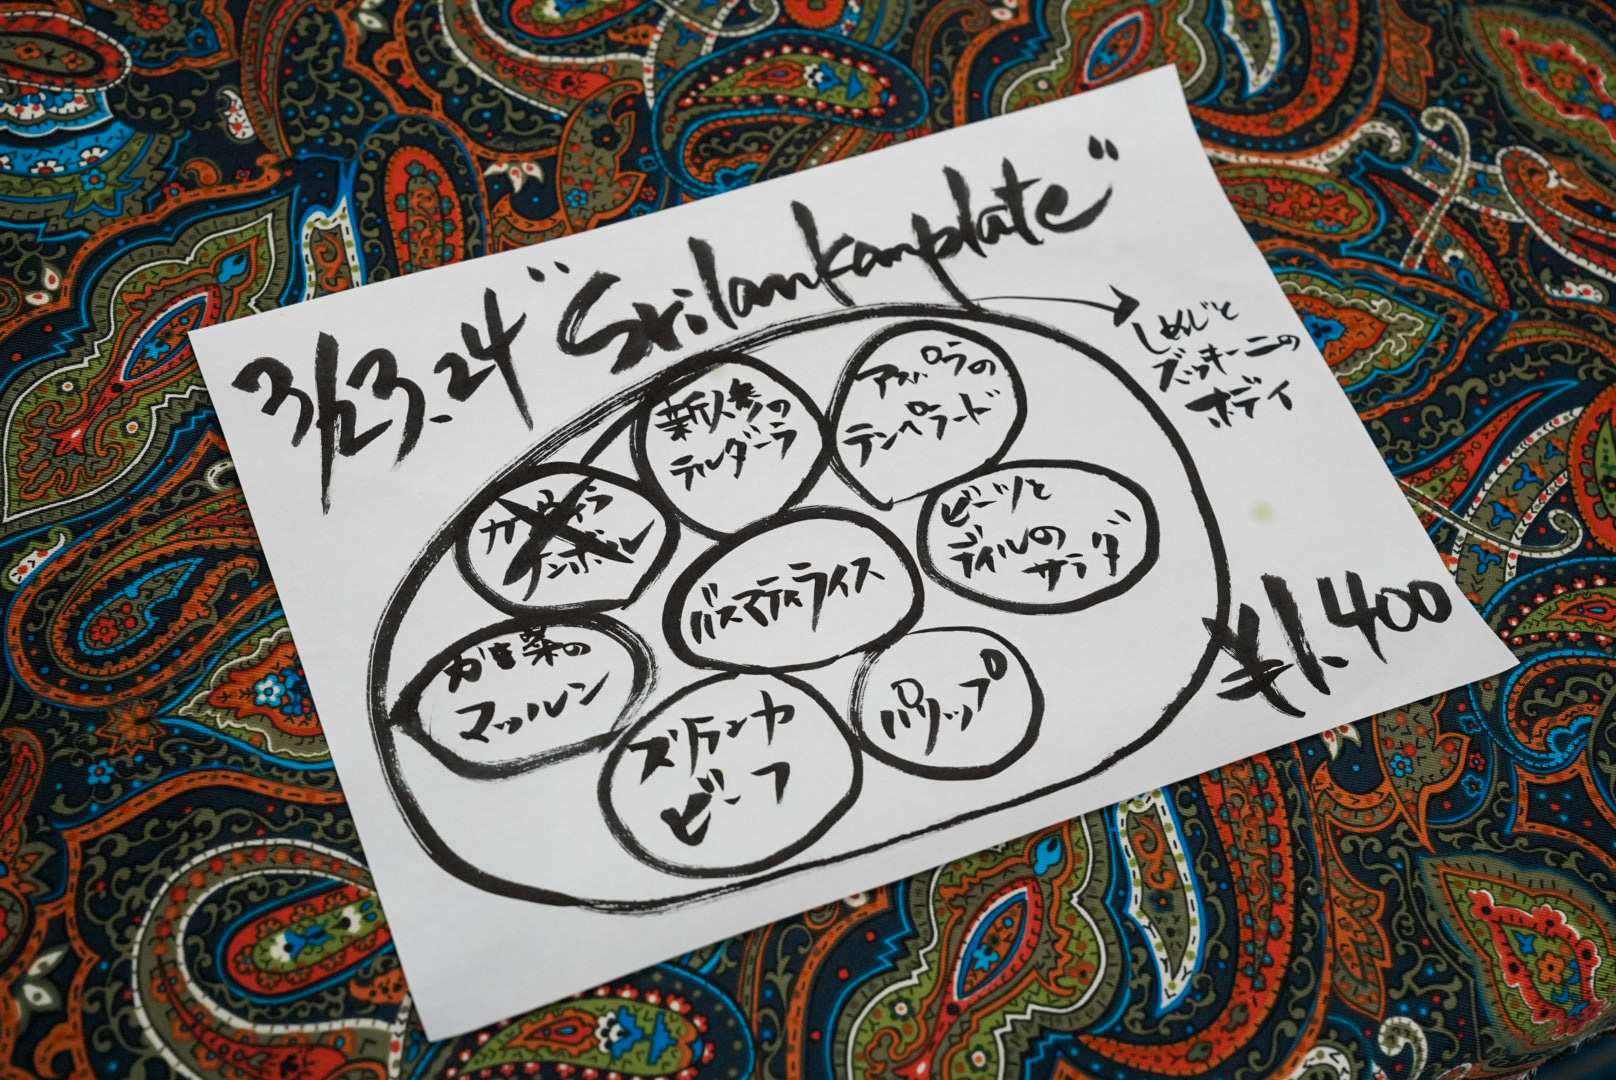 3/23.24 "Srilankanplate"
しめじと
ズッキーニの
ボディ
新人参の
テルダーラ
アスパラの
テンペラード
ビーツと
ディルの
サラダ
バスマティライス
から菜の
マッルン
スリランカ
ビーフ
パリップ
¥1.400